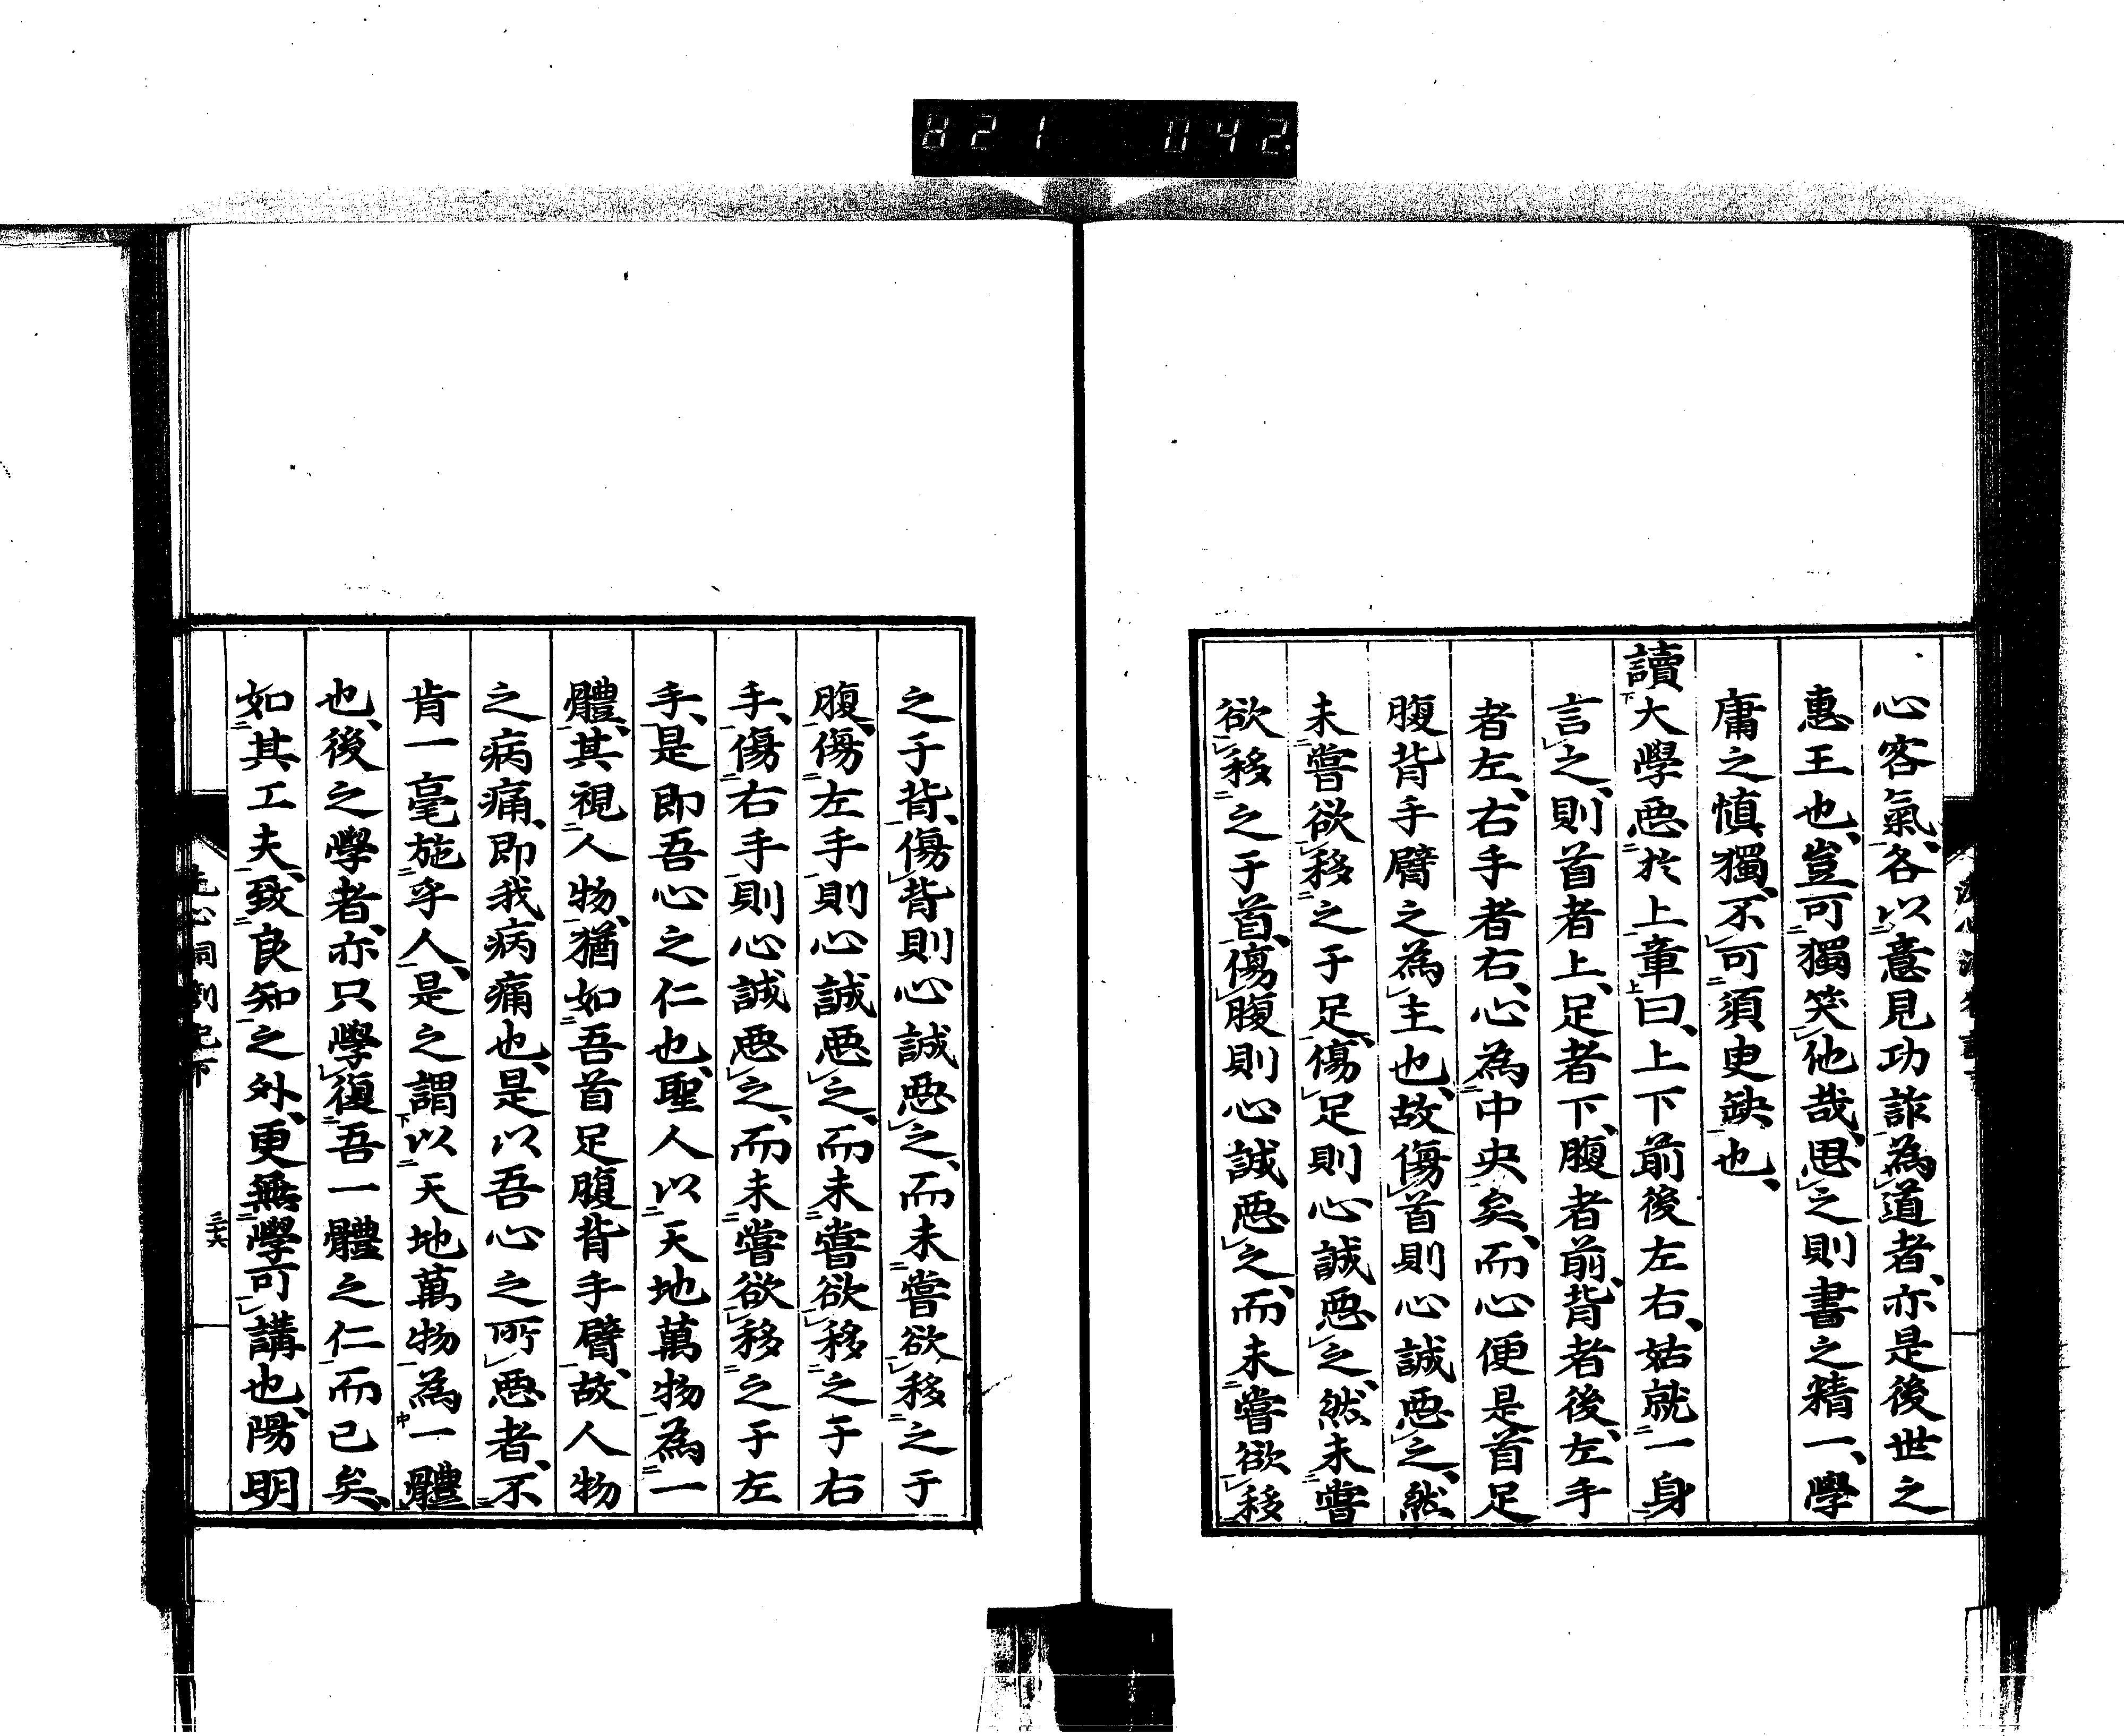 821 042.
心客氣、各以意見功詐為道者、亦是後世之
惠王也、豈可獨笑他哉、思之則書之精一、學
庸之慎獨、不可須臾缺也、
讀大學惡於上章曰、上下前後左右、姑就一身
言之、則首者上、足者下、腹者前、背者後、左手
者左、右手者右、心為中央矣、而心便是首足
腹背手臂之為主也、故傷首則心誠惡之、然
未嘗欲移之于足、傷足則心誠惡之、然未嘗
欲移之于首、傷腹則心誠惡之、而未嘗欲移
之于背、傷背則心誠惡之、而未嘗欲移之于
腹、傷左手則心誠惡之、而未嘗欲移之于右
手、傷右手則心誠惡之、而未嘗欲移之于左
手、是即吾心之仁也、聖人以天地萬物為一
體、其視人物、猶如吾首足腹背手臂、故人物
之病痛、即我病痛也、是以吾心之所惡者、不
肯一毫施乎人、是之謂以天地萬物為一體
也、後之學者、亦只學復吾一體之仁而已矣、
如其工夫、致良知之外、更無學可講也、陽明
洗心洞劄記下
三十六